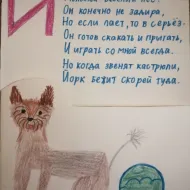 Й
Он конечно не задира,
Но если лает, то в серьёз.
Он готов скакать и прыгать,
И играть со мной всегда.
Но когда звенят кастрюли,
Йорк бежит скорей туда.